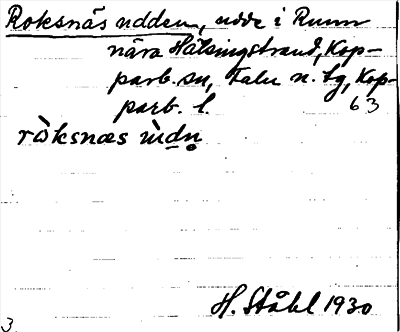 Roksnäs udden, udde i Runn
nära Hälsingstrand, Kop-
parb. sn, Falu n. tg, Kop-
parb. l. 63
ròksnæs ùdn̥
H. Ståhl 1930
3